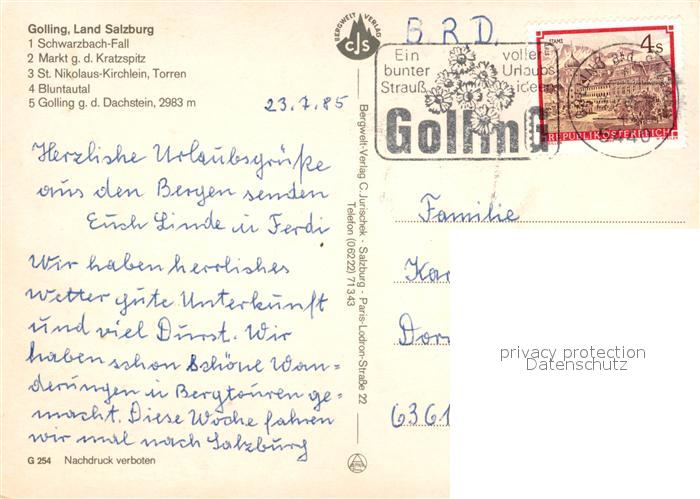 Golling, Land Salzburg
1 Schwarzbach-Fall
2 Markt g. d. Kratzspitz
3 St. Nikolaus-Kirchlein, Torren
4 Bluntautal
5 Golling g. d. Dachstein, 2983 m
23.7.85
Herzliche Urlaubsgrüße
aus den Bergen senden
Euch Linde u Ferdi
Wir haben herrliches
Wetter gute Unterkunft
und viel Durst. Wir
haben schon schöne Wan=
derungen u Bergtouren ge=
macht. Diese Woche fahren
wir mal nach Salzburg
G 254 Nachdruck verboten
BERGWELT VERLAG
CJS
Bergwelt-Verlag C. Jurischek - Salzburg - Paris-Lodron-Straße 22
Telefon (06222) 71343
B.R.D.
Ein voller
bunter Urlaubs
Strauß ideen
Golling
STAMS
4 S
REPUBLIK ÖSTERREICH
Familie
Kar
Dor
6361
privacy protection
Datenschutz